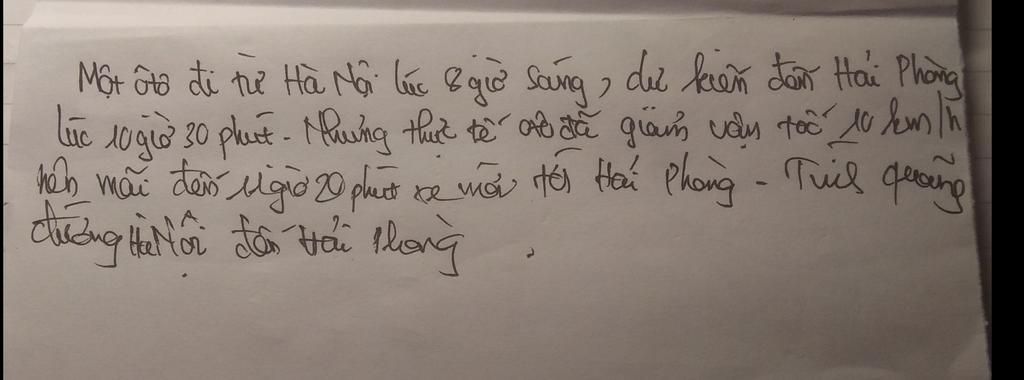 Một ôtô đi từ Hà Nội lúc 8 giờ sáng, dự kiến đến Hải Phòng
lúc 10 giờ 30 phút. Nhưng thực tế ôtô đã giảm vận tốc 10 km/h
nên mãi đến 11 giờ 20 phút xe mới tới Hải Phòng. Tính quãng
đường Hà Nội đến Hải Phòng